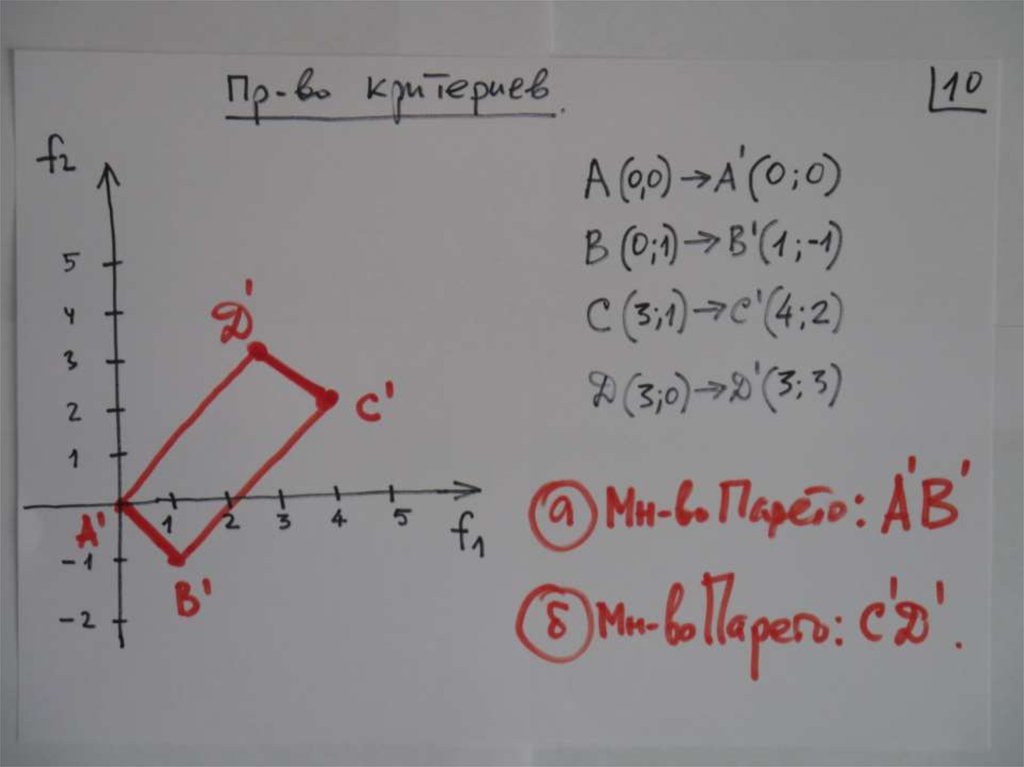 Пр-во критериев.
10
f2
5
4
3
2
1
-1
-2
1 2 3 4 5
f1
A'
B'
C'
D'
A (0,0) → A' (0; 0)
B (0;1) → B' (1; -1)
C (3;1) → C' (4; 2)
D (3;0) → D' (3; 3)
а Мн-во Парето: A'B'
б Мн-во Парето: C'D'.